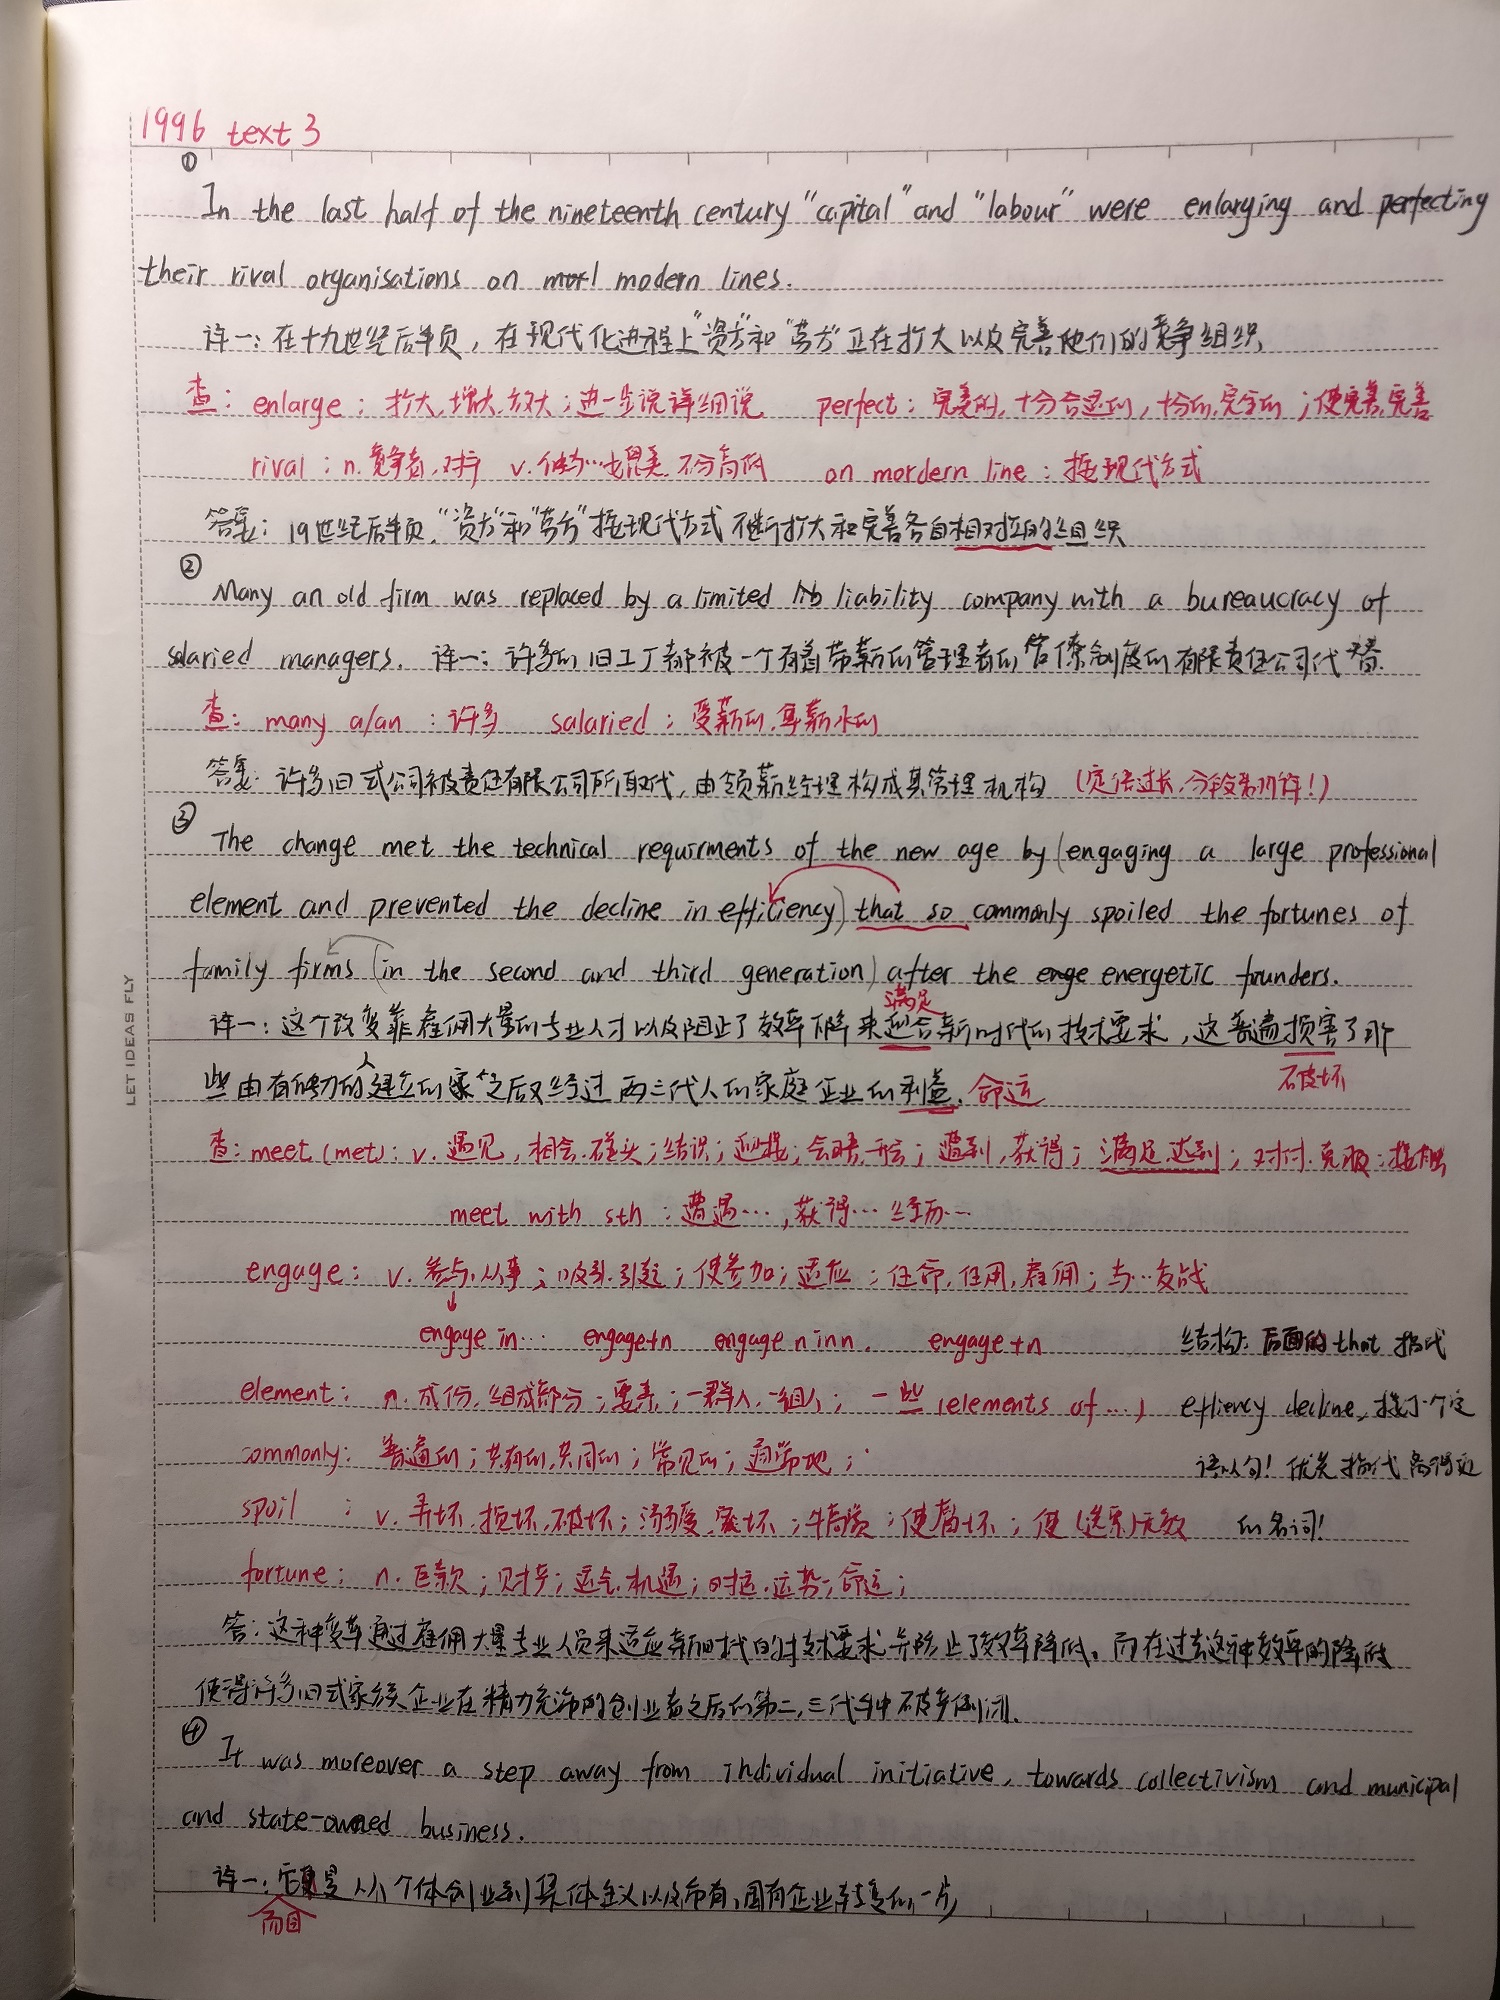 1996 text 3
①
In the last half of the nineteenth century "capital" and "labour" were enlarging and perfecting
their rival organisations on modern lines.
译一：在十九世纪后半页，在现代化进程上"资方"和"劳方"正在扩大以及完善他们的竞争组织
查：enlarge：扩大,增大,放大；进一步说详细说 perfect：完美的,十分合适的,十分的,完全的；使完美,完善
rival：n.竞争者,对手 v.与…媲美,不分高低 on mordern line：按现代方式
答案：19世纪后半页,"资方"和"劳方"按现代方式不断扩大和完善各自相对应的组织
②
Many an old firm was replaced by a limited liability company with a bureaucracy of
salaried managers. 译一：许多的旧工厂都被一个有着带薪的管理者的官僚制度的有限责任公司代替.
查：many a/an：许多 salaried：受薪的,拿薪水的
答案：许多旧式公司被责任有限公司所取代,由领薪经理构成其管理机构 (定语过长,分段翻译!)
③
The change met the technical requirments of the new age by (engaging a large professional
element and prevented the decline in efficiency) that so commonly spoiled the fortunes of
family firms (in the second and third generation) after the energetic founders.
满足
译一：这个改变靠雇佣大量的专业人才以及阻止了效率下降来迎合新时代的技术要求,这普遍损害了那
些由有能力的人建立的家之后又经过两三代人的家庭企业的利益. 命运
破坏
查：meet (met)：v.遇见,相会,碰头；结识；迎接；会晤,开会；遭到,获得；满足,达到；对付,克服；接触
meet with sth：遭遇…,获得…经历…
engage：v.参与,从事；吸引,引起；使参加；适应；任命,任用,雇佣；与…交战
engage in… engage+n engage n in n. engage+n 结构：后面的that指代
element：n.成份,组成部分；要素；一群人,一组人；一些(elements of…) effiency decline,接了个定
commonly：普遍的；共有的,共同的；常见的；通常地；
语从句！优先指代离得近
spoil：v.弄坏,损坏,破坏；溺爱,宠坏；使腐坏；使(选票)无效 的名词!
fortune：n.巨款；财产；运气,机遇；时运,运势；命运；
答：这种变革通过雇佣大量专业人员来适应新时代的技术要求并防止了效率降低,而在过去这种效率的降低
使得许多旧式家族企业在精力充沛的创业者之后的第二,三代手中破产倒闭.
④
It was moreover a step away from individual initiative, towards collectivism and municipal
and state-owned business.
译一：它是从个体创业到集体主义以及市有,国有企业转变的一步
而且
LET IDEAS FLY